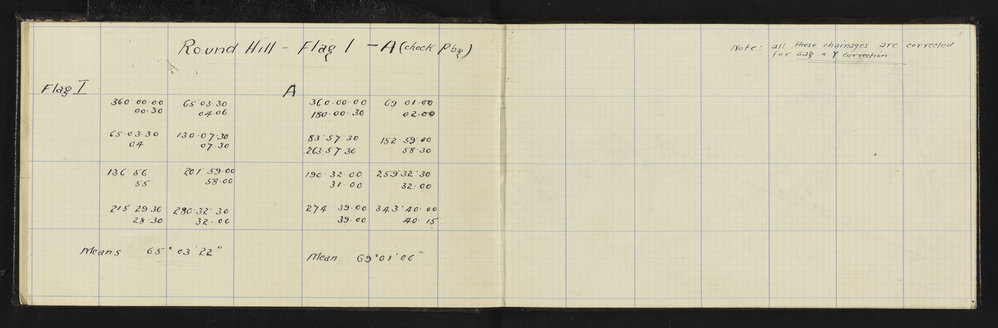 Round Hill - Flag 1 - A (check Pbg)
Note: all these chainages are corrected
for sag & Y correction
Flag I
A
360·00·00 65·03·30
00·30 04·06
65·03·30 130·07·30
04 07 30
136·56 201·59·00
55 58·00
215·29·30 280·32·30
28·30 32·00
Means 65° 03' 22"
360·00·00 69 01·00
180·00·30 02·00
83°57'30 152·59·00
263·57·30 58·30
190·32·00 259 32'30
31·00 32·00
274 39·00 343·40·00
39·00 40·15
Mean 69°01'06"